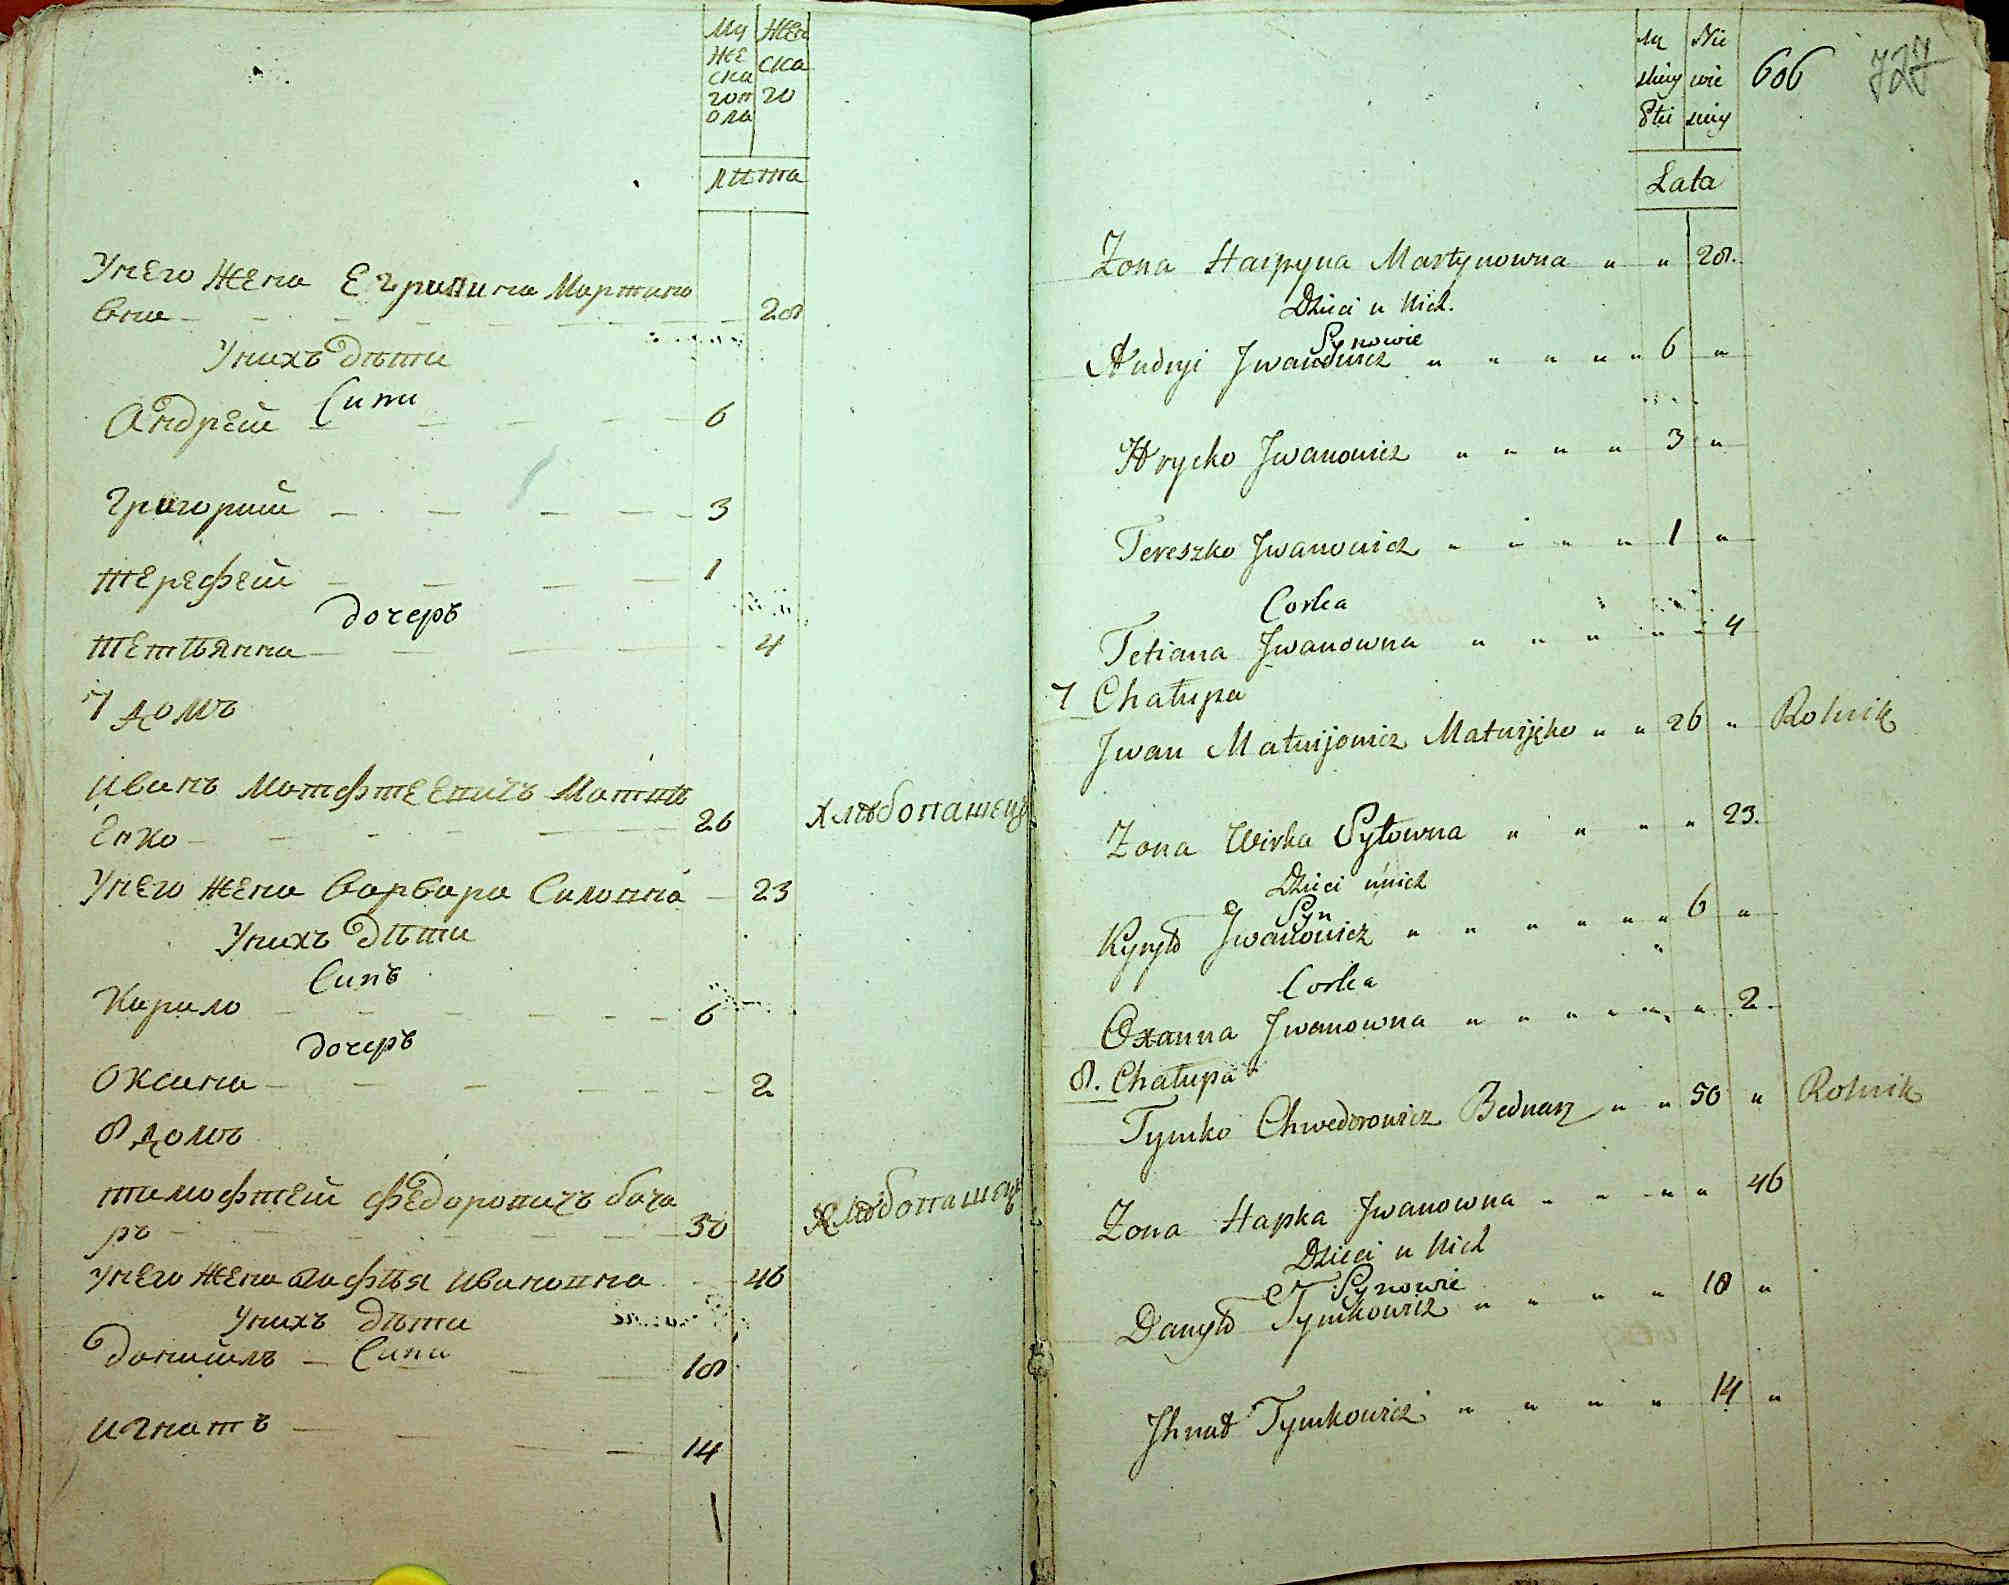 Му Жен
же ска
ска го
гоп
ола
лѣта
Унего жена Егрипина Мартино
вна 28
Унихъ дѣти
Сини
Андрей 6
Григорий 3
Терефей 1
дочеръ
Тетьянна 4
7 домъ
Иванъ Матфтеевичъ Матвѣ
енко 26 хлѣбопашецъ
Унего жена Варвара Силовна 23
Унихъ дѣти
Синъ
Кирило 6
дочеръ
Оксана 2
8 домъ
Тимофтей Федоровичъ бонда
ръ 50 хлѣбопашецъ
Унего жена Агафѣя Ивановна 46
Унихъ дѣти
Данишлъ Сини 18
Игнатъ 14
606 727
Lata
Zona Harpyna Martynowna " " 28.
Dzieci u Nich.
Synowie
Andryi Jwanowicz " " " " " 6 "
Hrycko Jwanowicz " " " " 3 "
Tereszko Jwanowicz " " " " 1 "
Corka
Tetiana Jwanowna " " " " " 4
7 Chałupa
Jwan Matwijowicz Matwijęko " " 26 " Rolnik
Zona Wirka Syłowna " " " " 23.
Dzieci unich
Syn
Kyryło Jwanowicz " " " " " " 6 "
Corka
Oxanna Jwanowna " " " " " " 2
8. Chałupa
Tymko Chwedorowicz Bednarz " " 50 " Rolnik
Zona Hapka Jwanowna " " " " 46
Dzieci u Nich
Synowie
Danyło Tymkowicz " " " " 18 "
Jhnat Tymkowicz " " " " 14 "